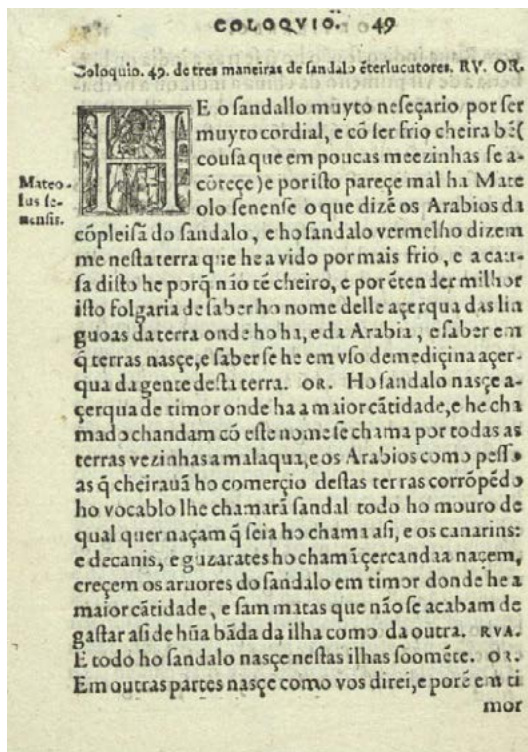 COLOQVIO. 49
Coloquio. 49. de tres maneiras de sandalo ẽterlucutores. RV. OR.
HE o sandallo muyto neseçario por ser
muyto cordial, e cõ ser frio cheira bẽ(
cousa que em poucas meezinhas se a-
cõteçe) e por isto pareçe mal ha Mate
olo senense o que dizẽ os Arabios da
cõpleisã do sandalo, e ho sandalo vermelho dizem
me nesta terra que he avido por mais frio, e a cau-
sa disto he porq̃ não tẽ cheiro, e por ẽtender milhor
isto folgaria de saber ho nome delle açerqua das lin
guoas da terra onde ho ha, e da Arabia, e saber em
q̃ terras nasçe, e saber se he em vso de mediçina açer-
qua da gente desta terra. OR. Ho sandalo nasçe a-
çerqua de timor onde ha a maior cãtidade, e he cha
mado chandam cõ este nome se chama por todas as
terras vezinhas a malaqua, e os Arabios como pesso
as q̃ cheirauã ho comerçio destas terras corrõpẽdo
ho vocablo lhe chamarã sandal todo ho mouro de
qual quer naçam q̃ seia ho chama asi, e os canarins:
e decanis, e guzarates ho chamã çercandaa naçem,
creçem os aruores do sandalo em timor donde he a
maior cãtidade, e sam matas que não se acabam de
gastar asi de hũa bãda da ilha como da outra. RVA.
E todo ho sandalo nasçe nestas ilhas soomẽte. OR.
Em outras partes nasçe como vos direi, e porẽ em ti
mor
Mateo-
lus se-
nensis.